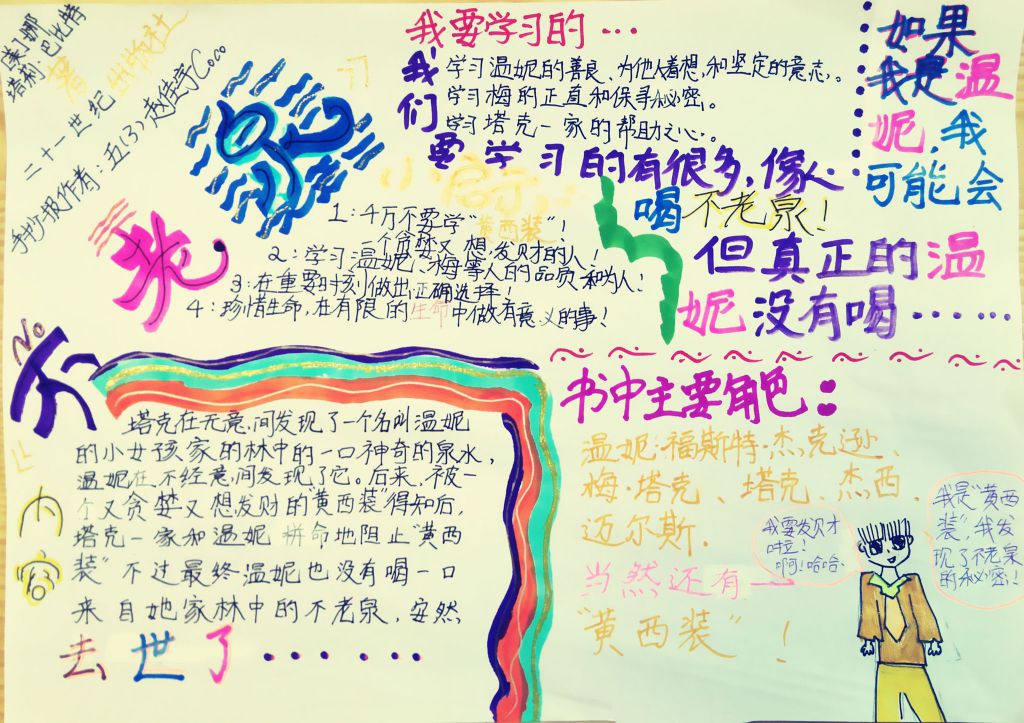 [美]娜
塔莉·巴比特
著
二十一世纪出版社
手抄报作者:五(3)赵佳宁Coco
No
不
老
泉
我要学习的…
我们要学习的有很多,像:
学习温妮的善良、为他人着想,和坚定的意志。
学习梅的正直和保寻秘密。
学习塔克一家的帮助之心。
小启示:
1:千万不要学“黄西装”!
一个贪婪又想发财的人!
2:学习温妮、梅等人的品质和为人!
3:在重要时刻做出正确选择!
4:珍惜生命,在有限的生命中做有意义的事!
如果
我是温
妮,我
可能会
喝不老泉!
但真正的温
妮没有喝……
内容
塔克在无意间发现了一个名叫温妮
的小女孩家的林中的一口神奇的泉水,
温妮在不经意间发现了它。后来,被一
个又贪婪又想发财的“黄西装”得知后,
塔克一家和温妮拼命地阻止“黄西
装”不过最终温妮也没有喝一口
来自她家林中的不老泉,安然
去世了......
书中主要角色:
温妮·福斯特·杰克逊、
梅·塔克、塔克、杰西、
迈尔斯.
当然还有——
“黄西装”!
我要发财
啦!
啊!哈哈.
我是“黄西
装”,我发
现了不老泉
的秘密!